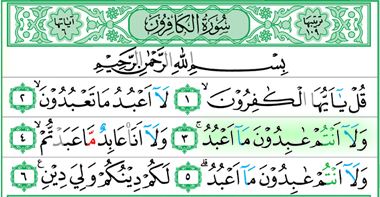 ترتيبها ١٠٩ سُورَةُ الْكَافِرُونَ آياتها ٦
بِسْمِ اللَّهِ الرَّحْمَٰنِ الرَّحِيمِ
قُلْ يَا أَيُّهَا الْكَٰفِرُونَ ١ لَآ أَعْبُدُ مَا تَعْبُدُونَ ٢
وَلَآ أَنتُمْ عَٰبِدُونَ مَآ أَعْبُدُ ٣ وَلَآ أَنَا۠ عَابِدٌ مَّا عَبَدتُّمْ ٤
وَلَآ أَنتُمْ عَٰبِدُونَ مَآ أَعْبُدُ ٥ لَكُمْ دِينُكُمْ وَلِيَ دِينِ ٦